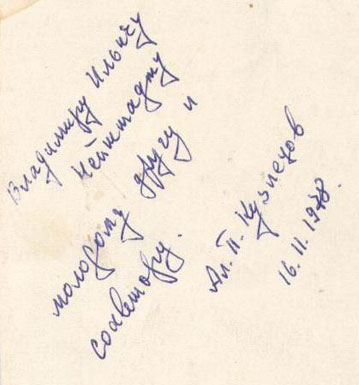 Владимиру Ильичу
Нейштадту
молодому другу и
соавтору.
Ал. П. Кузнецов
16.11.1978.